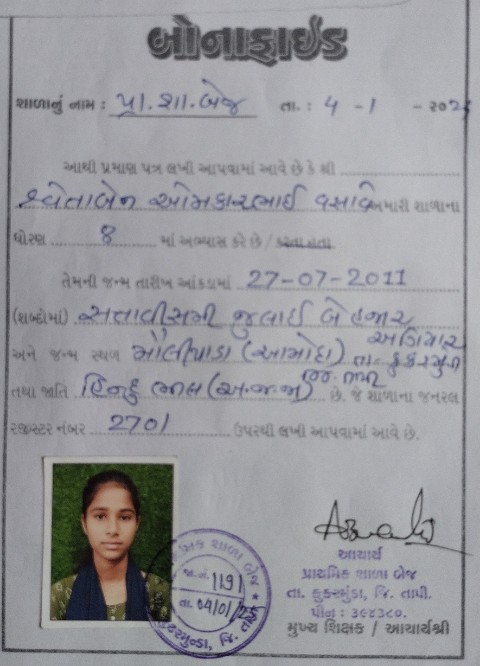 બોનાફાઈડ
શાળાનું નામ : પ્રા. શા. બેજ તા. : 4 - 1 - ૨૦૨
આથી પ્રમાણ પત્ર લખી આપવામાં આવે છે કે શ્રી
શ્વેતાબેન ઓમકારભાઈ વસાવે અમારી શાળાના
ધોરણ 8 માં અભ્યાસ કરે છે / કરતા હતા
તેમની જન્મ તારીખ આંકડામાં 27-07-2011
(શબ્દોમાં) સત્તાવીસમી જુલાઈ બે હજાર
અગિયાર
અને જન્મ સ્થળ મૌલીપાડા (આમોદા) તા- કુકરમુંડા
જિ. તાપી
તથા જાતિ હિન્દુ ભીલ (અ.જ.જા) છે. જે શાળાના જનરલ
રજીસ્ટર નંબર 2701 ઉપરથી લખી આપવામાં આવે છે.
શાળા બેજ
જા.નં. 1191
તા. 04/01/
કુકરમુન્ડા, જિ. તાપી
આચાર્ય
પ્રાથમિક શાળા બેજ
તા. કુકરમુંડા, જિ. તાપી.
પીન : ૩૯૪૩૮૦.
મુખ્ય શિક્ષક / આચાર્યશ્રી